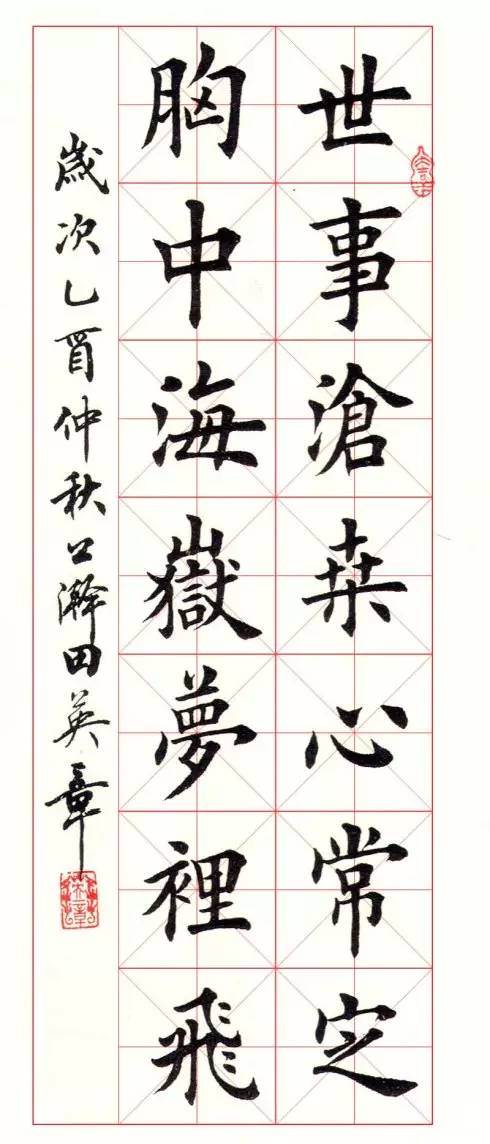 世事滄桒心常定
胸中海嶽夢裡飛
歲次乙酉仲秋公瀚田英章